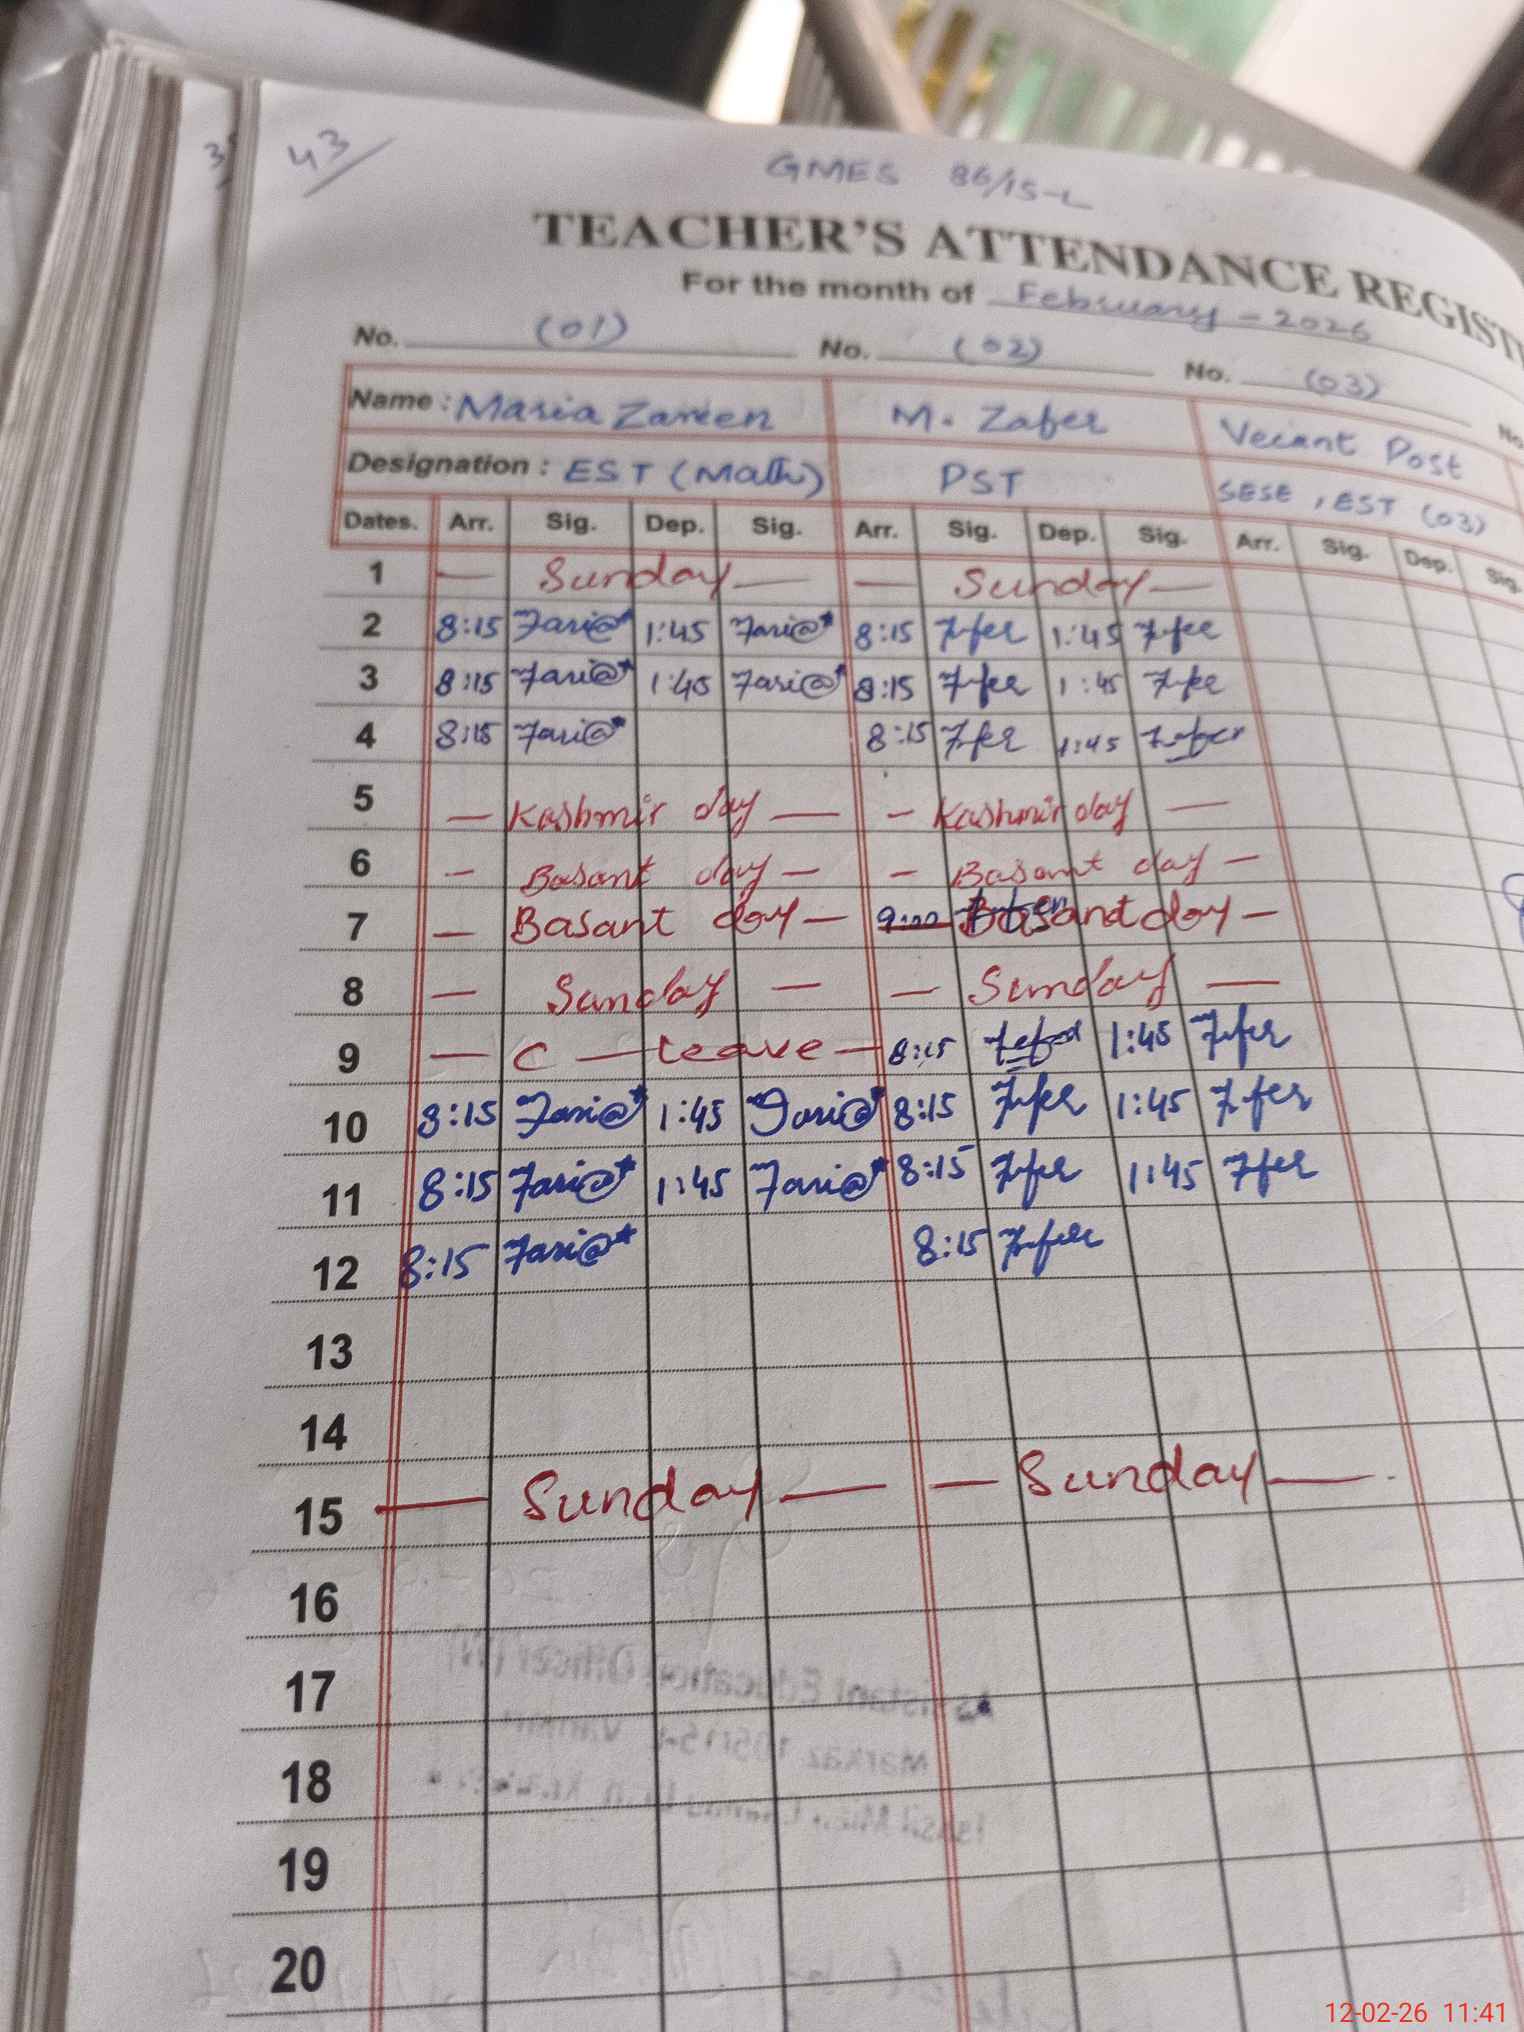 43
GMES 86/15-L
TEACHER'S ATTENDANCE REGIST
For the month of February - 2026
No. (01) No. (02) No. (03) No.
Name : Maria Zareen M. Zafer Vecant Post
Designation : EST (Math) PST SESE, EST (03)
Dates. Arr. Sig. Dep. Sig. Arr. Sig. Dep. Sig. Arr. Sig. Dep. Sig.
1 — Sunday — — Sunday —
2 8:15 1:45 8:15 Zafer 1:45 Zafer
3 8:15 1:45 8:15 Zafer 1:45 Zafer
4 8:15 8:15 Zafer 1:45 Zafer
5 — Kashmir day — — Kashmir day —
6 — Basant day — — Basant day —
7 — Basant day — 9:00 Basant day —
8 — Sunday — — Sunday —
9 — C — leave — 8:15 Zafer 1:45 Zafer
10 8:15 1:45 8:15 Zafer 1:45 Zafer
11 8:15 1:45 8:15 Zafer 1:45 Zafer
12 8:15 8:15 Zafer
13
14
15 — Sunday — — Sunday —
16
17
18
19
20
12-02-26 11:41